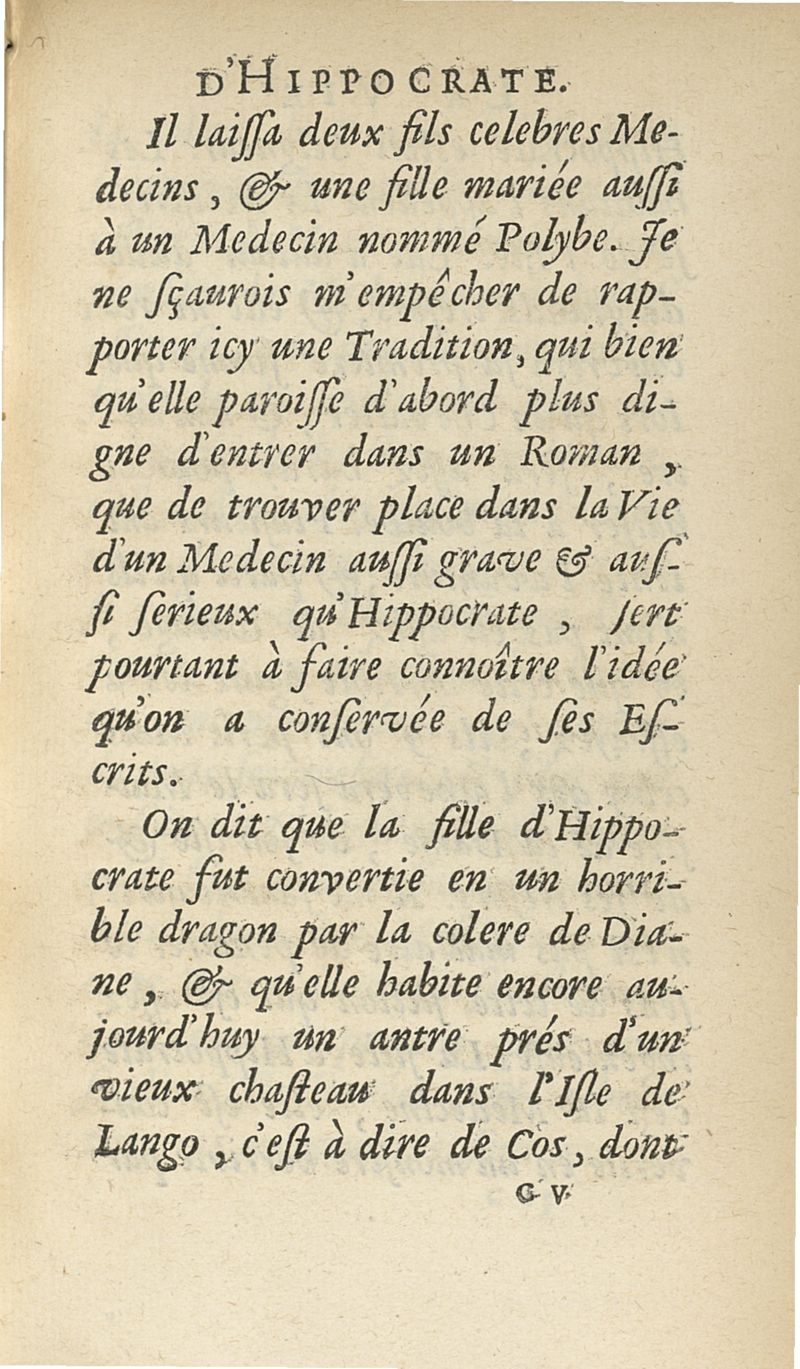 D'HIPPOCRATE.
Il laiſſa deux fils celebres Me-
decins, & une fille mariée auſſi
à un Medecin nommé Polybe. Je
ne ſçaurois m'empêcher de rap-
porter icy une Tradition, qui bien
qu'elle paroiſſe d'abord plus di-
gne d'entrer dans un Roman,
que de trouver place dans la Vie
d'un Medecin auſſi grave & auſ-
ſi ſerieux qu'Hippocrate, ſert
pourtant à faire connoître l'idée
qu'on a conſervée de ſes Eſ-
crits.
On dit que la fille d'Hippo-
crate fut convertie en un horri-
ble dragon par la colere de Dia-
ne, & qu'elle habite encore au-
jourd'huy un antre prés d'un
vieux chaſteau dans l'Iſle de
Lango, c'eſt à dire de Cos, dont
G v